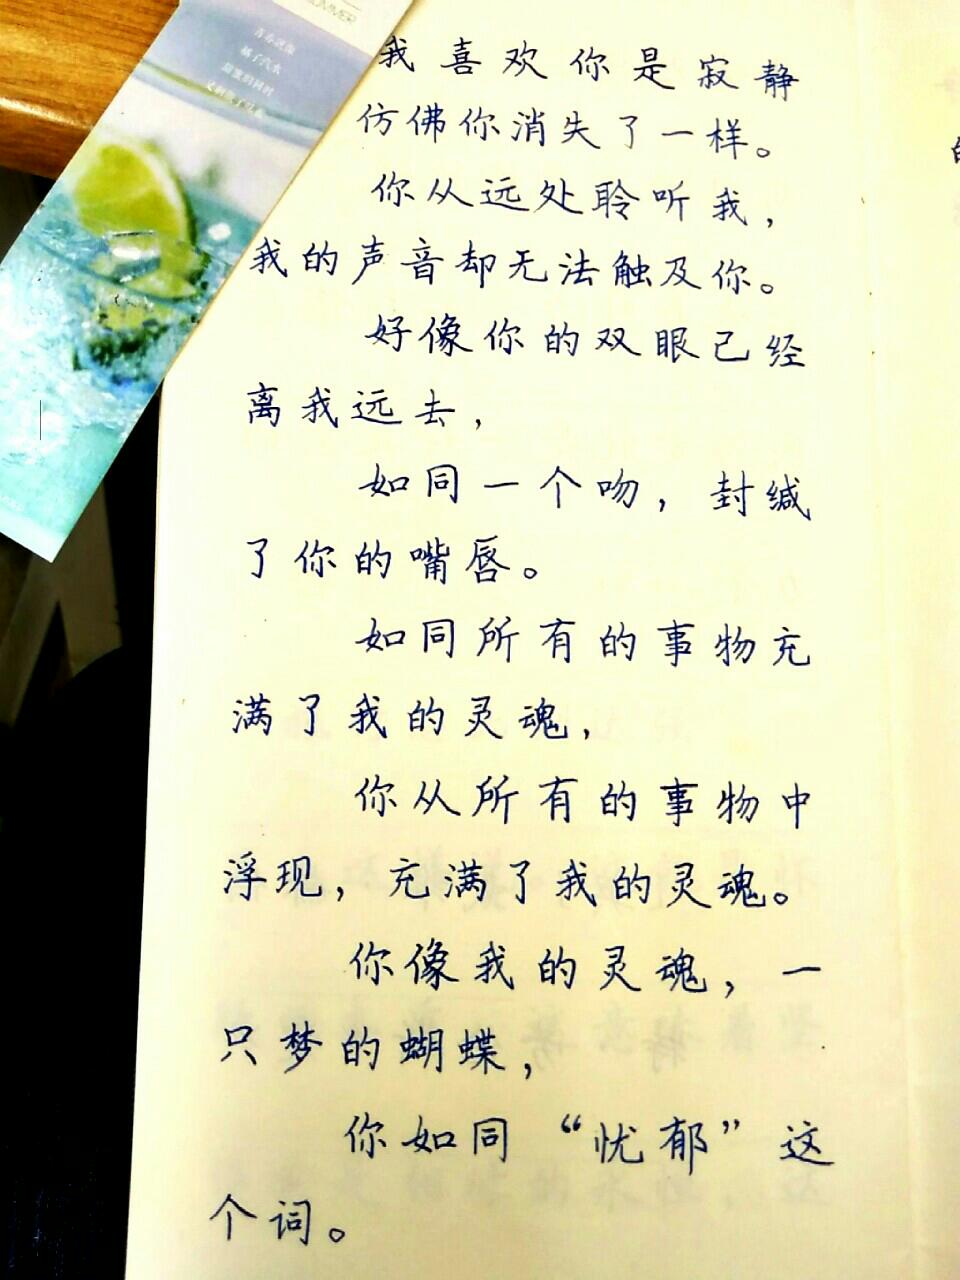 我喜欢你是寂静
仿佛你消失了一样。
你从远处聆听我，
我的声音却无法触及你。
好像你的双眼已经
离我远去，
如同一个吻，封缄
了你的嘴唇。
如同所有的事物充
满了我的灵魂，
你从所有的事物中
浮现，充满了我的灵魂。
你像我的灵魂，一
只梦的蝴蝶，
你如同“忧郁”这
个词。